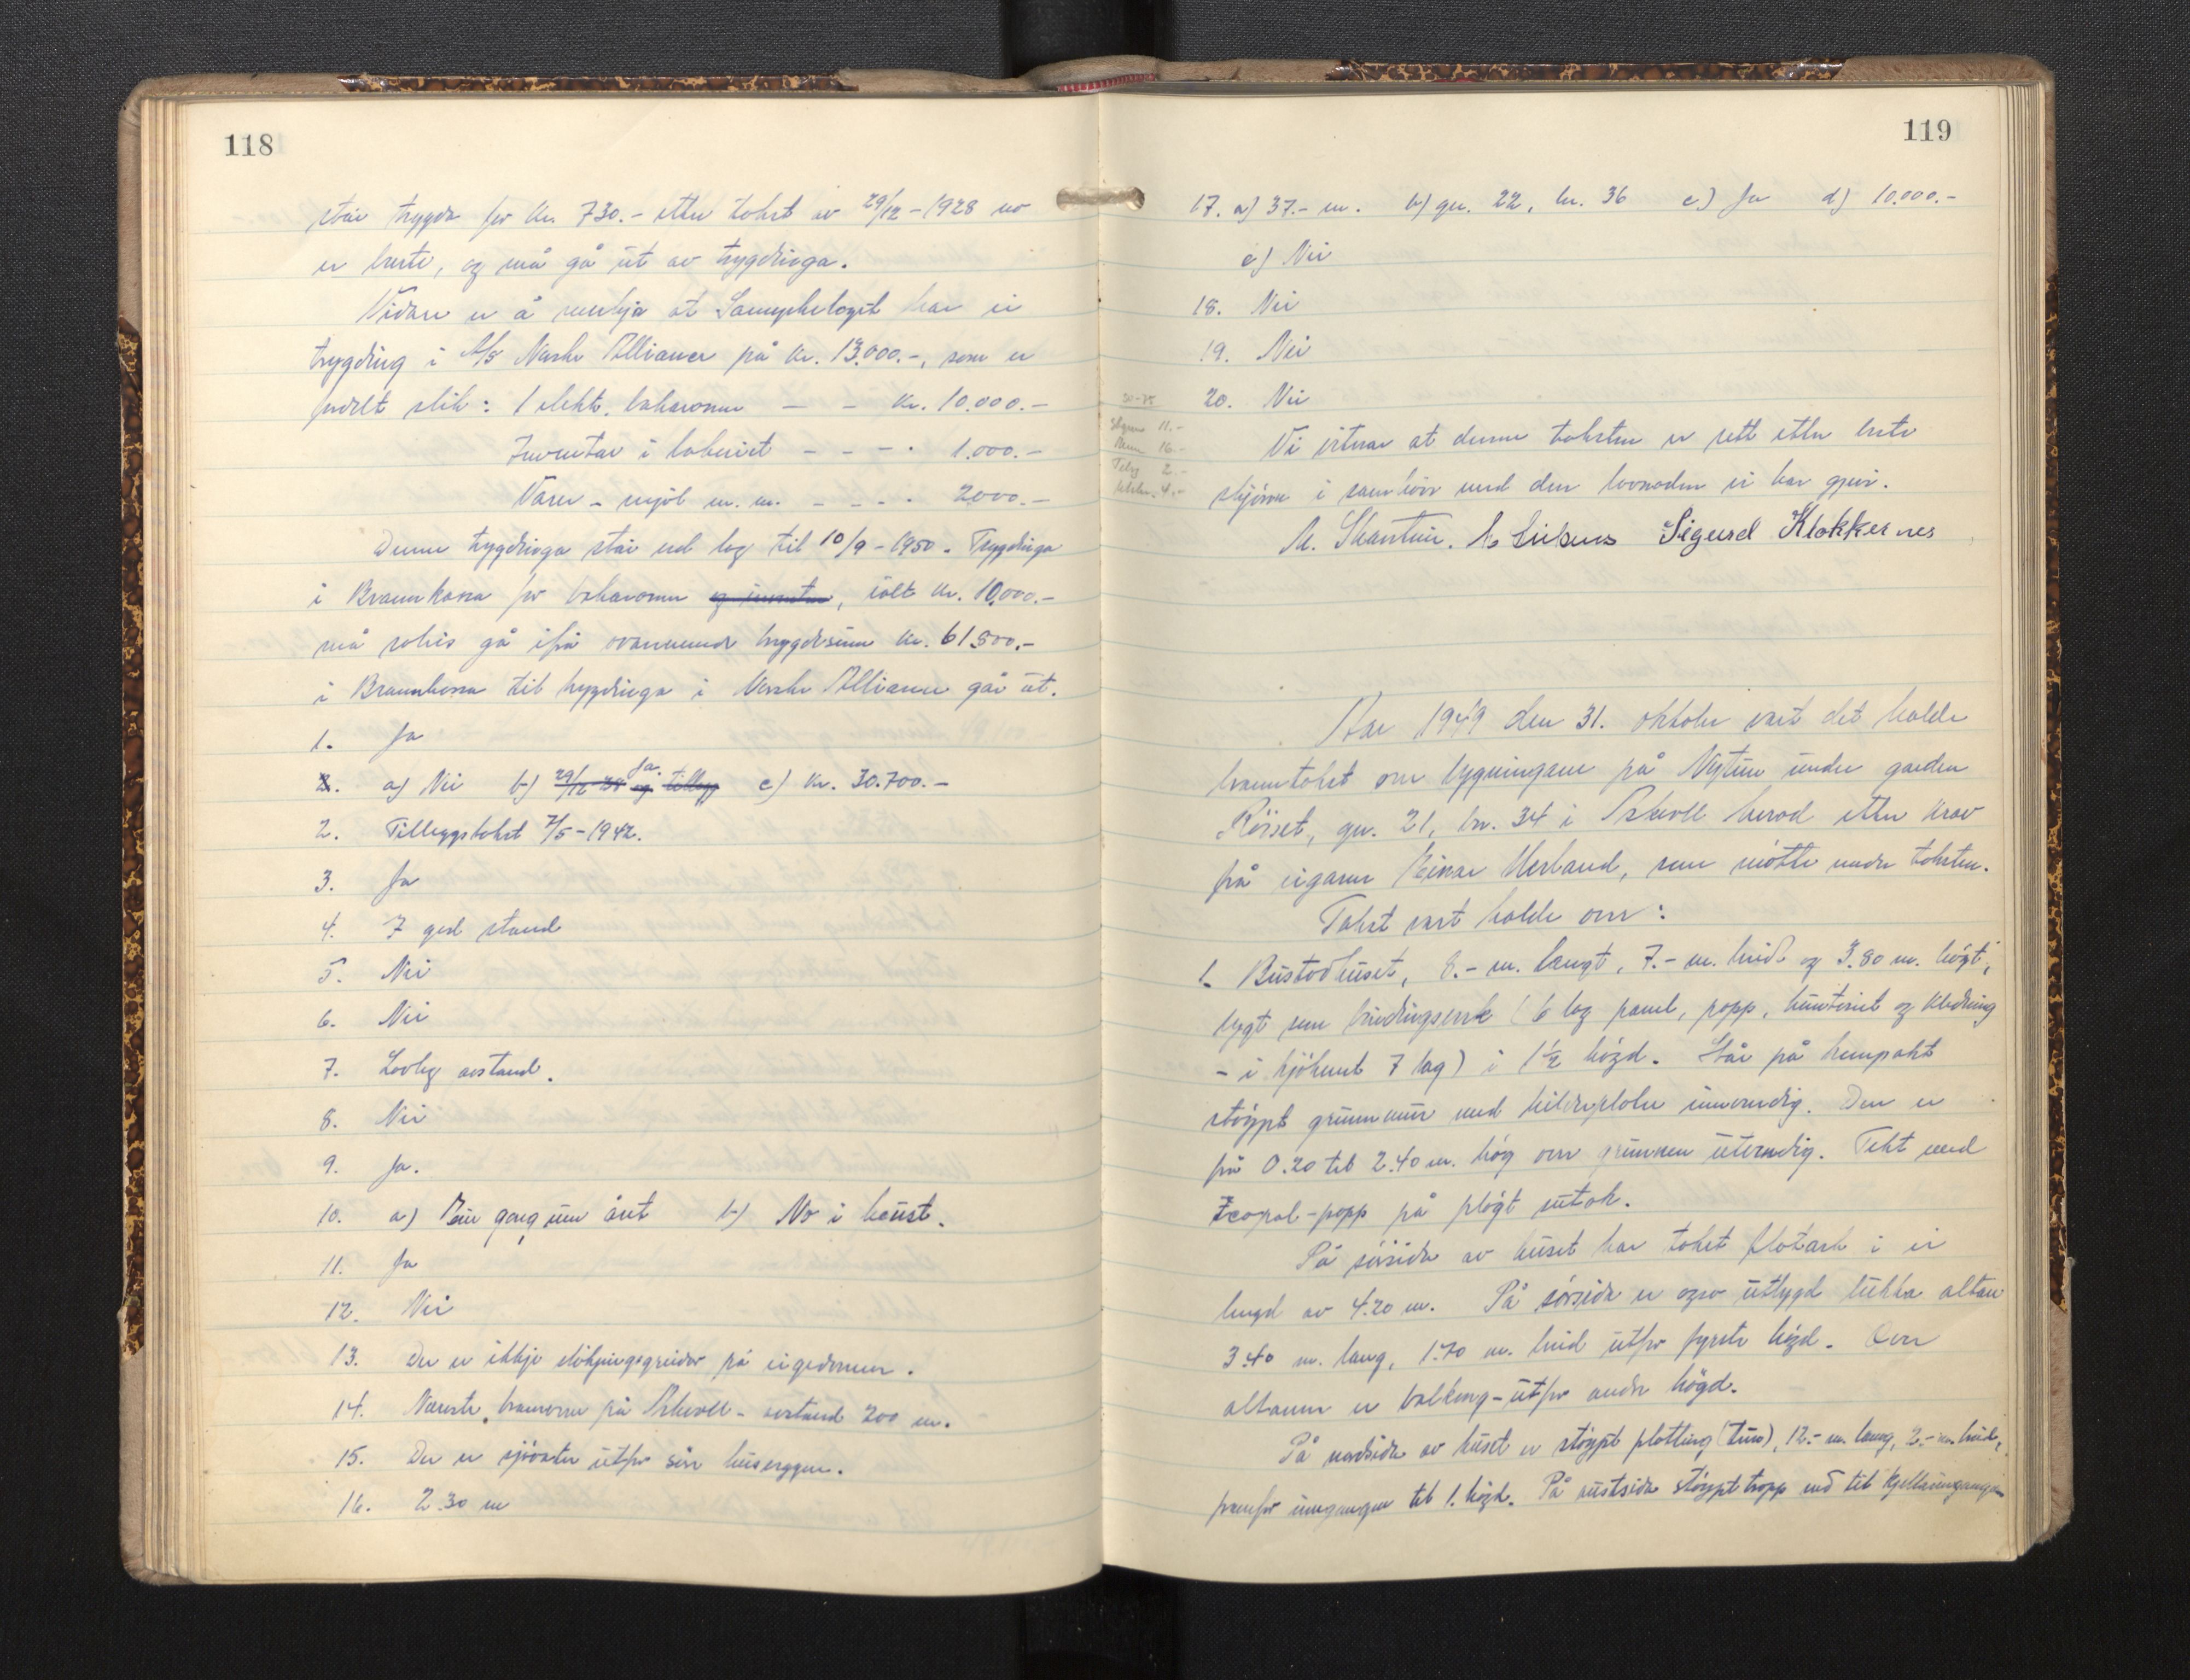 118
står trygda for kr. 730.- etter takst av 29/12-1928 no
er burte, og må gå ut av trygdinga.
Vidare er å merkja at Samyrkelaget har ei
trygding i A/S Norske Alliance på kr. 13.000.-, som er
fordelt slik: 1 elekt. bakaromn — - kr. 10.000.-
Inventar i bakeriet - - - . 1.000.-
Varer - mjøl m. m. - - - . 2000.-
Denne trygdinga står ved lag til 10/9-1950. Trygdinga
i Brannkassa for bakaromn og inventar, ialt kr. 10.000.-
må soleis gå ifrå ovannemnde trygdesum kr. 61.800.-
i Brannkassa til trygdinga i Norske Alliance går ut.
1. Ja
2. a) Nei b) 29/12-28 og tillegg Ja. c) kr. 30.700.-
2. Tilleggstakst 7/5-1942.
3. Ja
4. I god stand
5. Nei
6. Nei
7. Lovleg avstand.
8. Nei
9. Ja.
10. a) Ein gong um året b) No i haust.
11. Ja
12. Nei
13. Der er ikkje sløkjingsgreidor på eigedomen.
14. Næraste, brannvern på Askvoll - avstand 200 m.
15. Der er sjøvatn utfor sør husveggen.
16. 2.30 m
119
17. a) 37.- m. b) gn. 22, bn. 36 c) Ja d) 10.000.-
e) Nei
18. Nei
19. Nei
20. Nei
11.-
16.-
2.-
4.-
Vi vitnar at denne taksten er rett etter beste
skjøn i samhøve med den lovnaden vi har gjeve.
Sigurd Klokkernes
Aar 1949 den 31. oktober vart det halde
branntakst over bygningane på Nytun under garden
gn. 21, bn. 34 i Askvoll herad etter krav
frå eigaren Einar Herland, som møtte under taksten.
Takst vart halde over:
1. Bustadhuset, 8.- m. langt, 7.- m. breidt og 3.80 m. høgt,
bygt som bindingsverk (6 lag panel, papp, huntonit og kledning
- i kjøkenet 7 lag) i 1½ høgd. Står på kompakt
støypt grunnmur med kilderplater innvendig. Den er
frå 0.20 til 2.40 m. høg over grunnen utvendig. Tekt med
Icopal-papp på pløgt sutak.
På sørsida av huset har taket flatark i ei
lengd av 4.20 m. På sørsida er ogso utbygd lukka altan
3.40 m. lang, 1.70 m. breid utfor fyrste høgd. Over
altanen er balkong - utfor andre høgd.
På nordsida av huset er støypt platting (tun), 12.- m. lang, 2.- m. breid,
framfor inngangen til 1. høgd. På austsida støypt trapp ned til kjellarinngangen